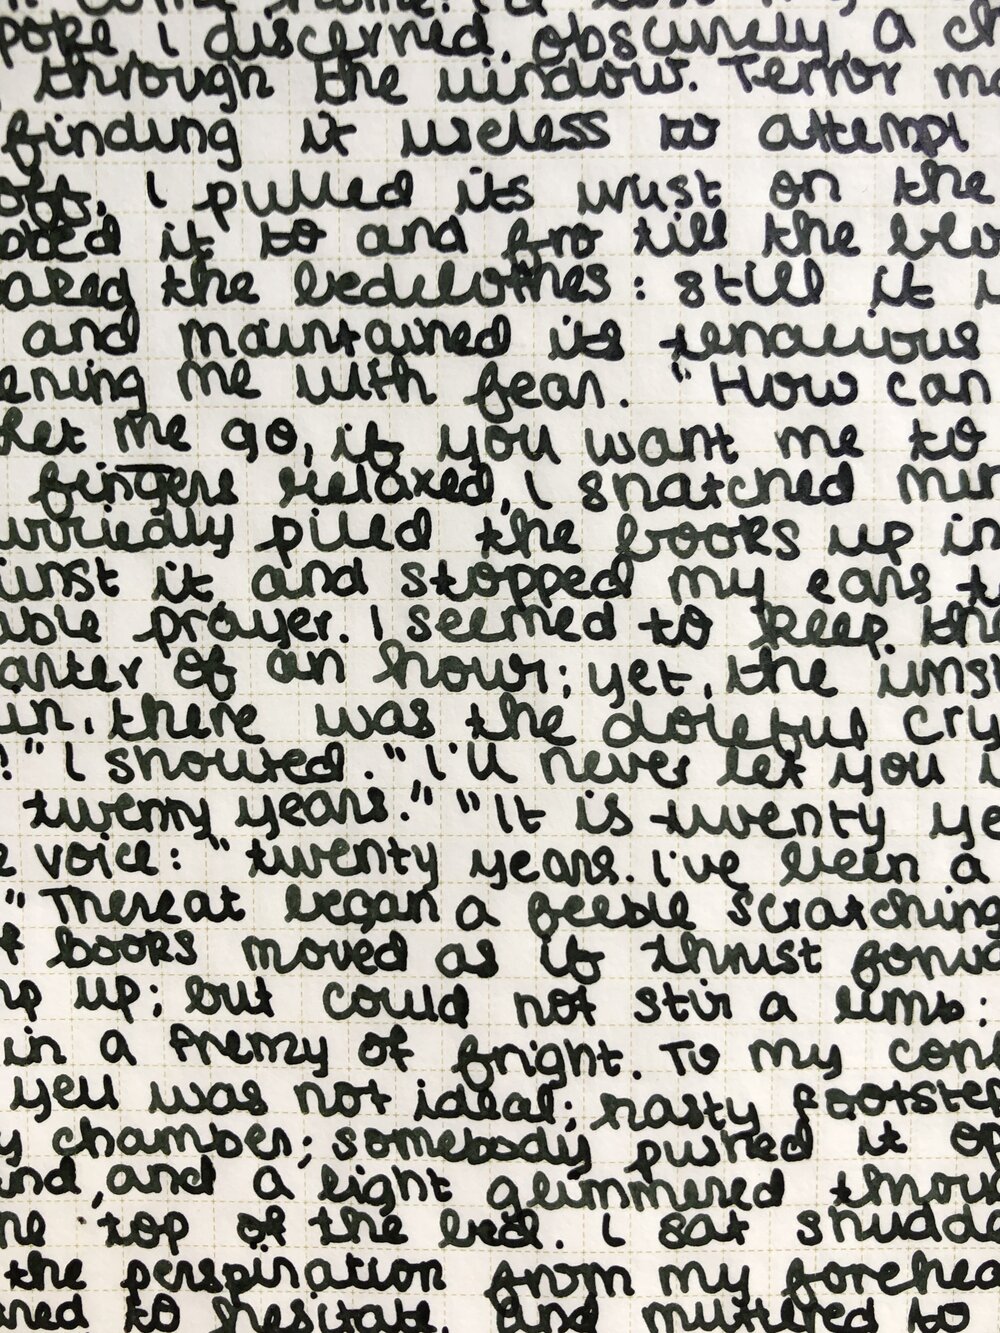 spoke, I discerned, obscurely, a
through the window. Terror
finding it useless to attempt
off, I pulled its wrist on the
it to and fro till the
the bedclothes: still it
and maintained its tenacious
me with fear. "How can
Let me go, if you want me to
fingers relaxed, I snatched
hurriedly piled the books up in
it and stopped my ears
prayer. I seemed to keep the
of an hour; yet, the
there was the doleful cry
!" I shouted. "I'll never let you
twenty years." "It is twenty
voice: "twenty years. I've been a
" Thereat began a feeble scratching
books moved as if thrust
up; but could not stir a limb:
in a frenzy of fright. To my
yell was not ideal; hasty
chamber; somebody pushed it
and a light glimmered
top of the bed. I sat
the perspiration from my
to hesitate, and muttered to